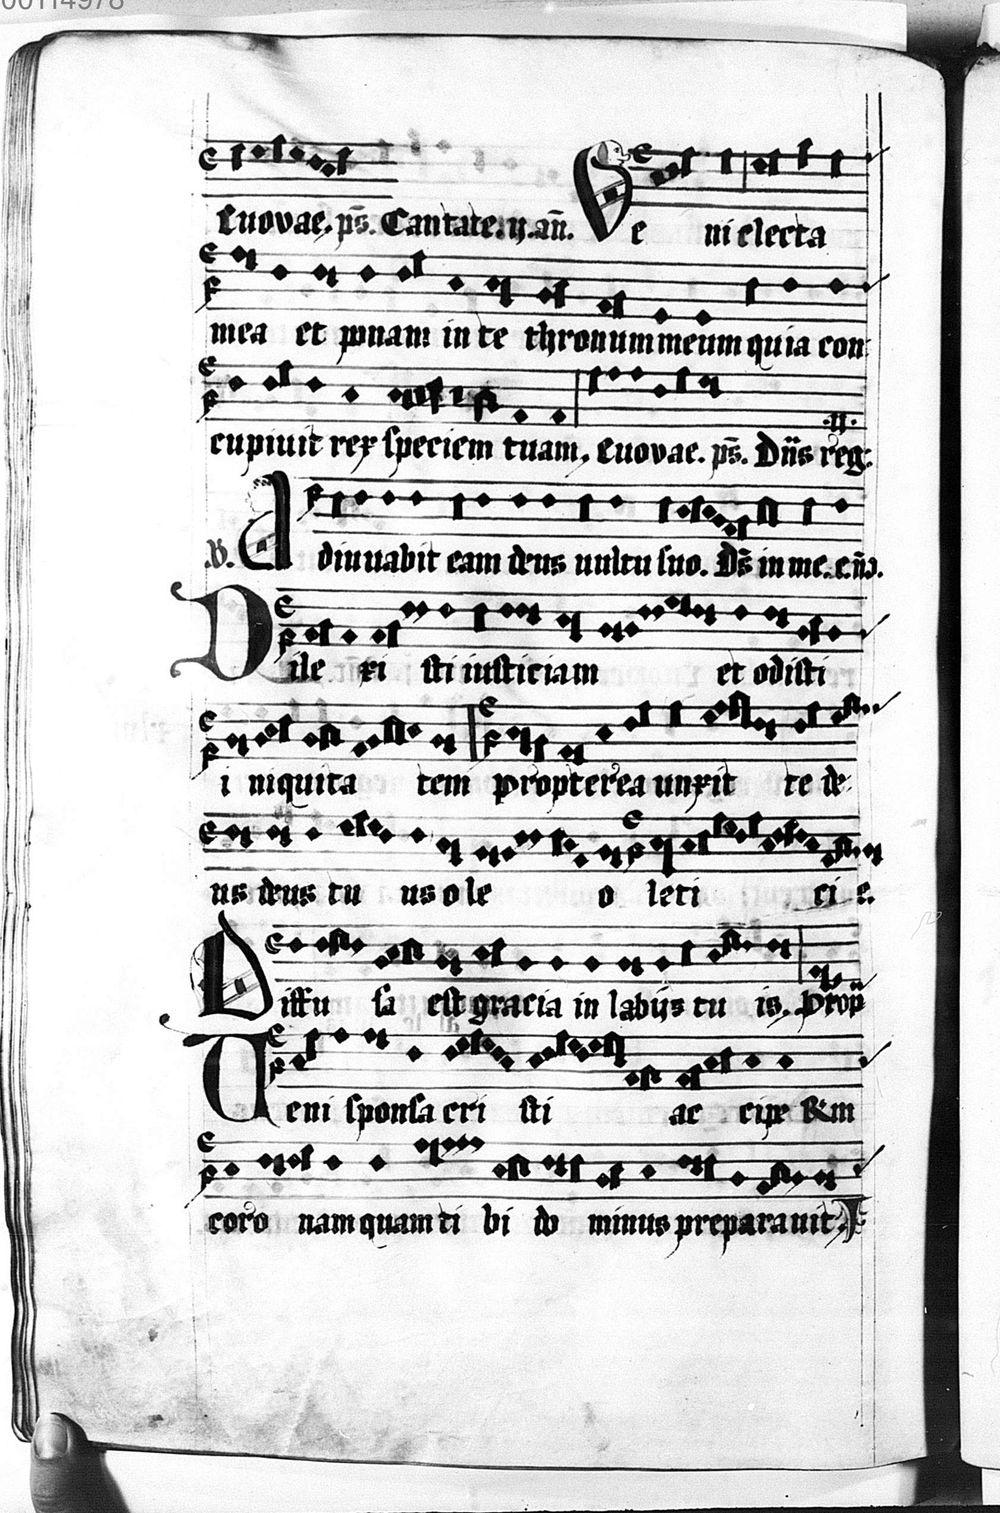 00114978
Euovae. ps̄. Cantate. ij. an̄. Ve ni electa
mea et ponam in te thronum meum quia con
cupiuit rex speciem tuam. Euovae. ps̄. Dn̄s reg.
.ij.
.V. Adiuuabit eam deus uultu suo. Ds̄ in me. e.
Dile xi sti iusticiam et odisti
i niquita tem propterea unxit te de
us deus tu us ole o leti cie.
Diffu sa est gracia in labijs tu is. Prop̄
Ueni sponsa cri sti ac cipe
coro nam quam ti bi do minus preparauit.